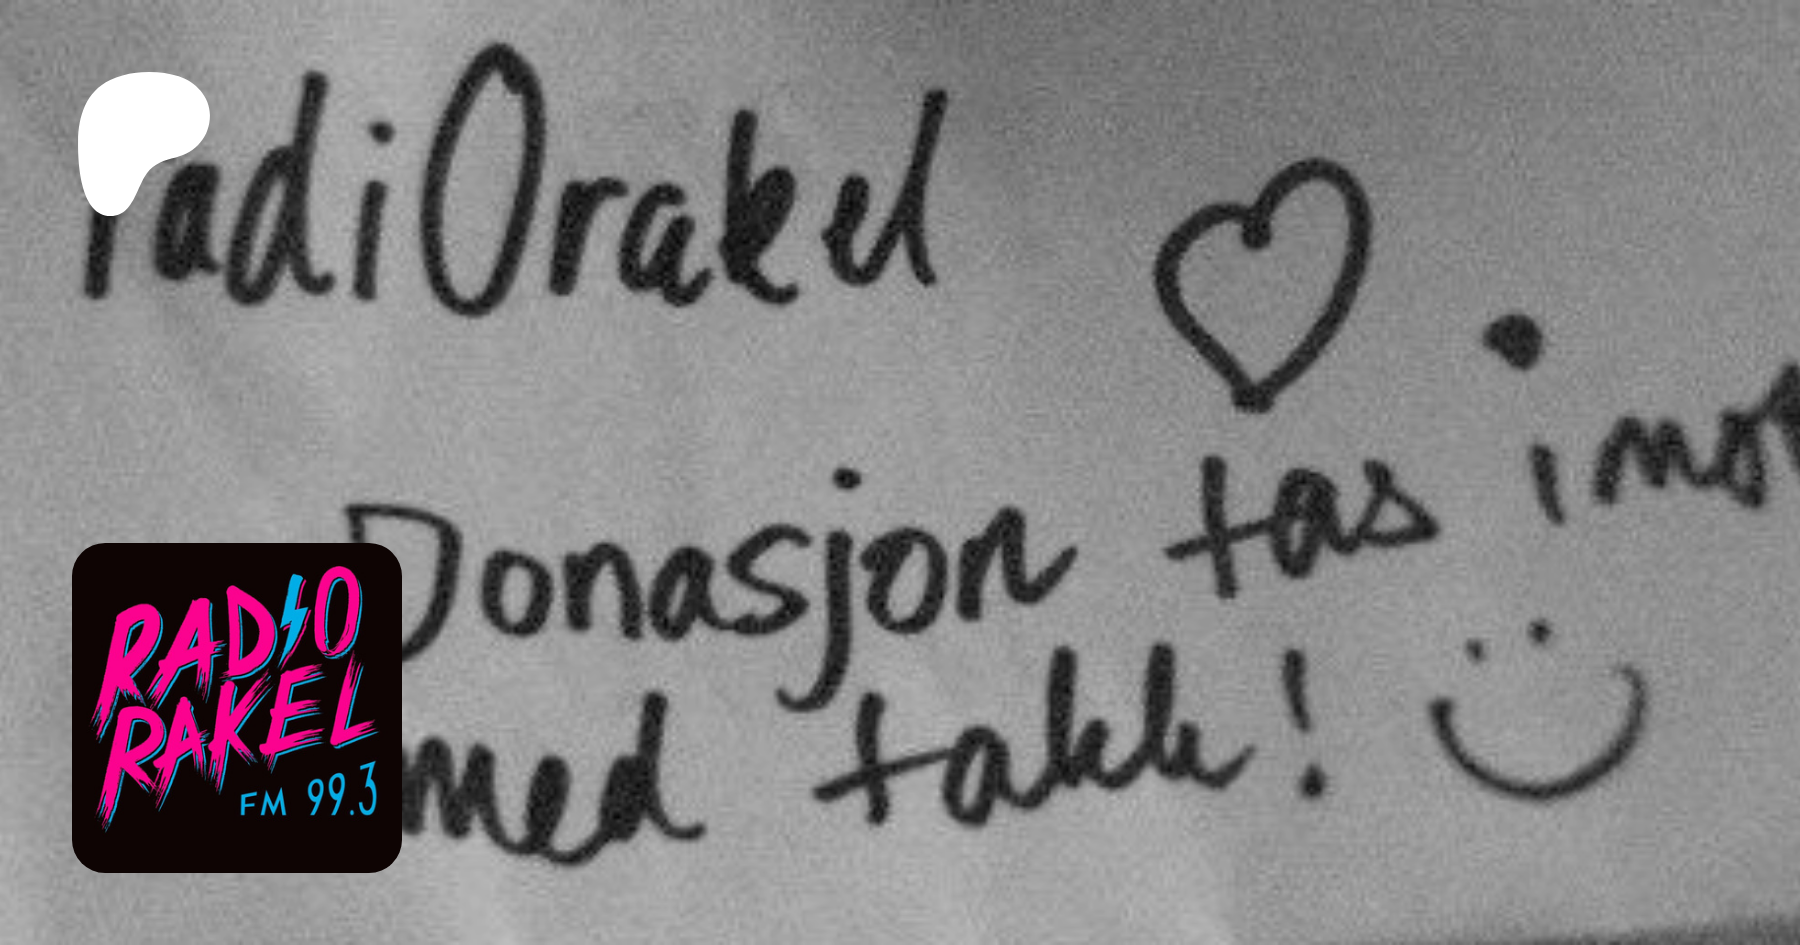 radiOrakel
Donasjon tas imot
med takk!
RADIO
RAKEL
FM 99.3